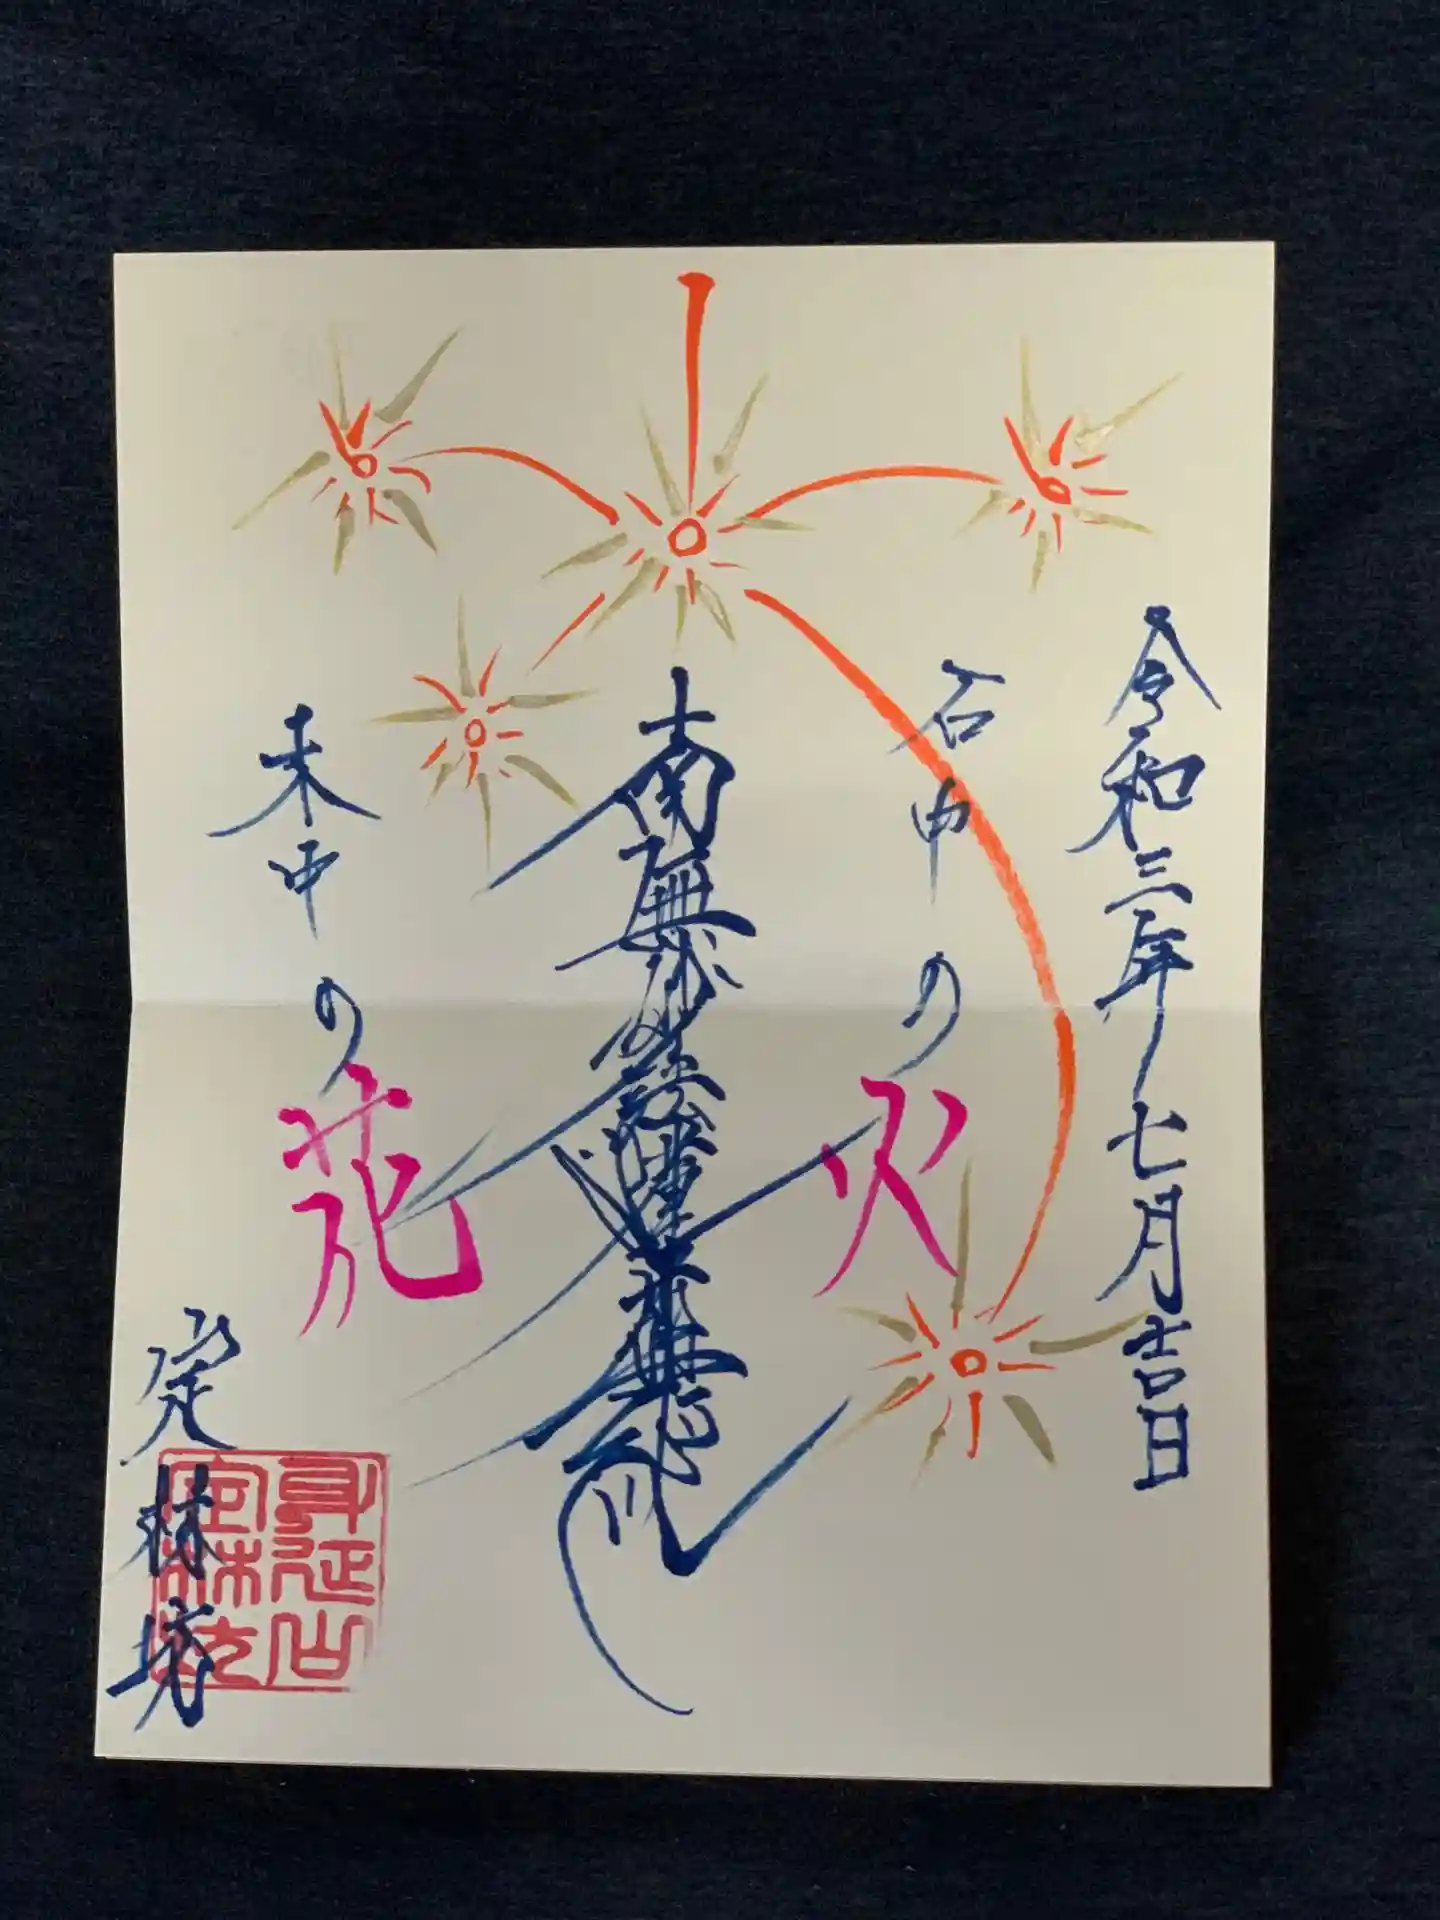 令和三年七月吉日
石中の火
南無妙法蓮華経
木中の花
定林坊
身延山
定林坊